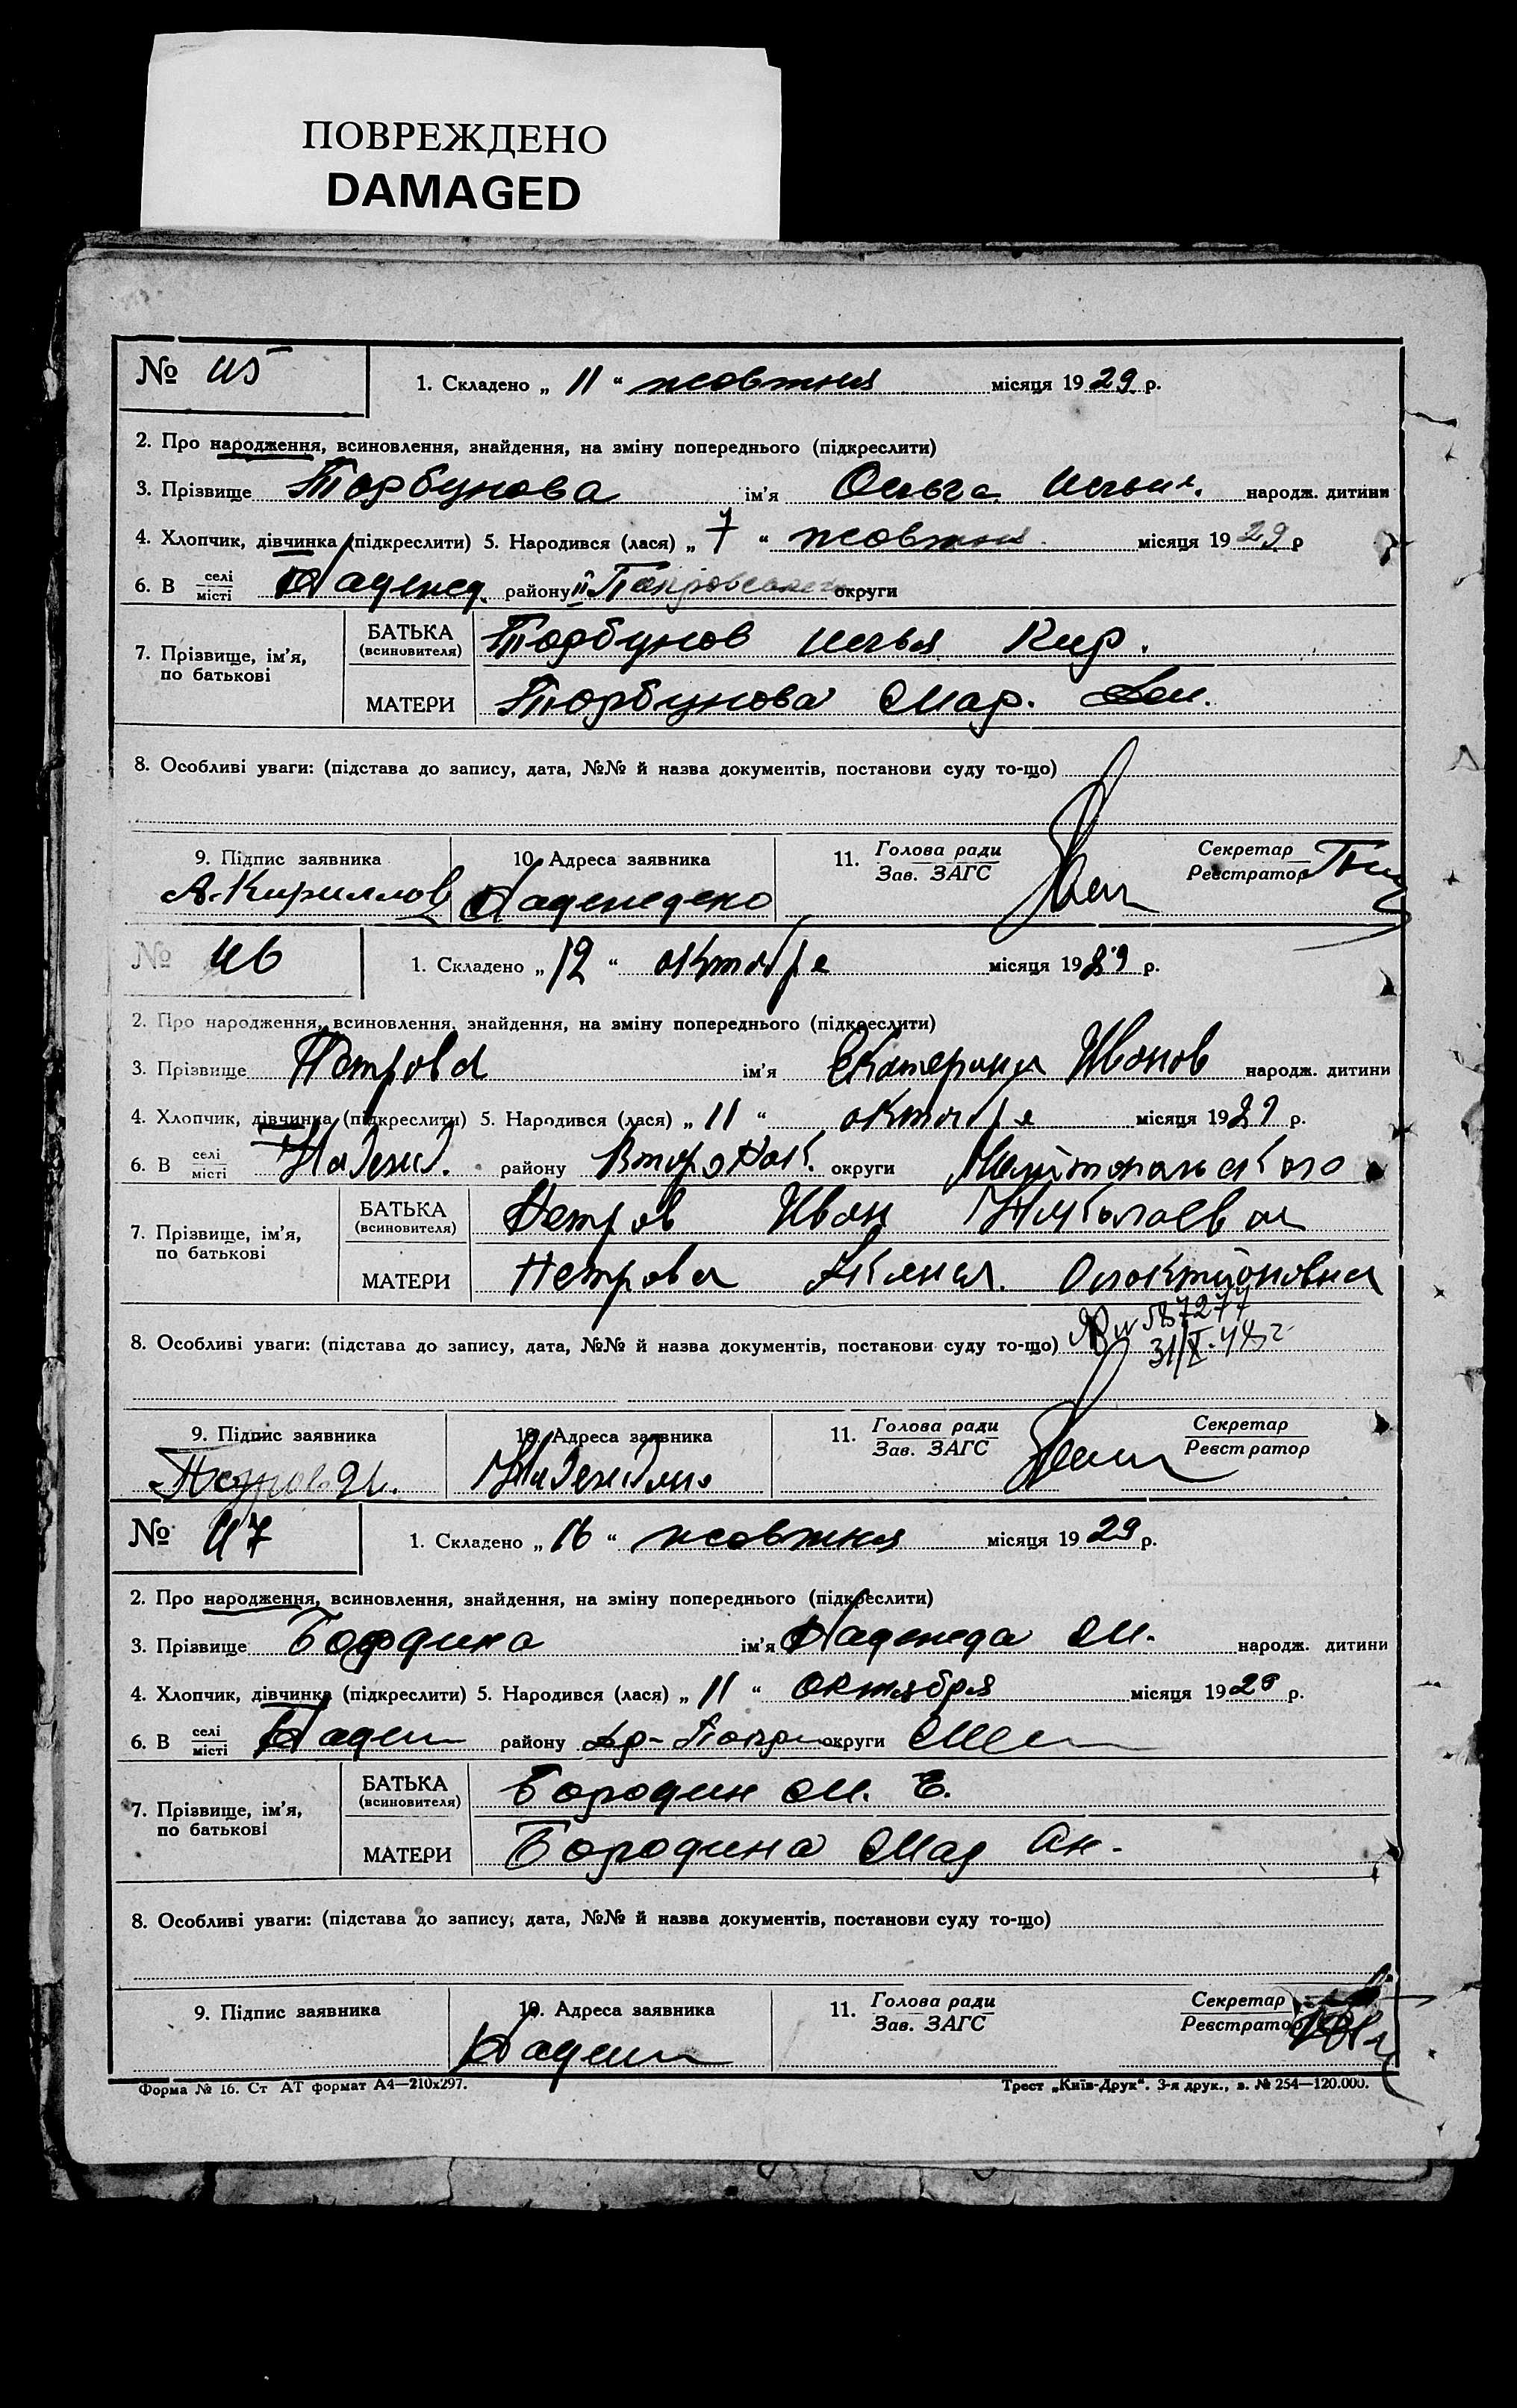 ПОВРЕЖДЕНО
DAMAGED
№ 45
1. Складено „ 11 “ жовтня місяця 1929 р.
2. Про народження, всиновлення, знайдення, на зміну попереднього (підкреслити)
3. Прізвище Торбунова ім’я Ольга народж. дитини
4. Хлопчик, дівчинка (підкреслити) 5. Народився (лася) „ 7 “ жовтня місяця 1929 р
6. В селі місті району округи
7. Прізвище, ім’я, по батькові
БАТЬКА (всиновителя) Торбунов Илья Кир.
МАТЕРИ Торбунова Мар.
8. Особливі уваги: (підстава до запису, дата, №№ й назва документів, постанови суду то-що)
9. Підпис заявника 10. Адреса заявника 11. Голова ради Зав. ЗАГС Секретар Реєстратор
А. Кириллов
№ 46
1. Складено „ 12 “ октября місяця 1929 р.
2. Про народження, всиновлення, знайдення, на зміну попереднього (підкреслити)
3. Прізвище Петрова ім’я Екатерина Иванов народж. дитини
4. Хлопчик, дівчинка (підкреслити) 5. Народився (лася) „ 11 “ октября місяця 1929 р.
6. В селі місті району округи Мелитопольского
7. Прізвище, ім’я, по батькові
БАТЬКА (всиновителя) Петров Иван Николаевич
МАТЕРИ Петрова
8. Особливі уваги: (підстава до запису, дата, №№ й назва документів, постанови суду то-що)
9. Підпис заявника 10. Адреса заявника 11. Голова ради Зав. ЗАГС Секретар Реєстратор
№ 47
1. Складено „ 16 “ жовтня місяця 1929 р.
2. Про народження, всиновлення, знайдення, на зміну попереднього (підкреслити)
3. Прізвище ім’я Надежда М. народж. дитини
4. Хлопчик, дівчинка (підкреслити) 5. Народився (лася) „ 11 “ октября місяця 1929 р.
6. В селі місті району округи
7. Прізвище, ім’я, по батькові
БАТЬКА (всиновителя) Бородин М. Е.
МАТЕРИ Бородина Мар Ан.
8. Особливі уваги: (підстава до запису, дата, №№ й назва документів, постанови суду то-що)
9. Підпис заявника 10. Адреса заявника 11. Голова ради Зав. ЗАГС Секретар Реєстратор
Форма № 16. Ст АТ формат А4—210х297. Трест „Київ-Друк“. 3-я друк., з. № 254—120.000.